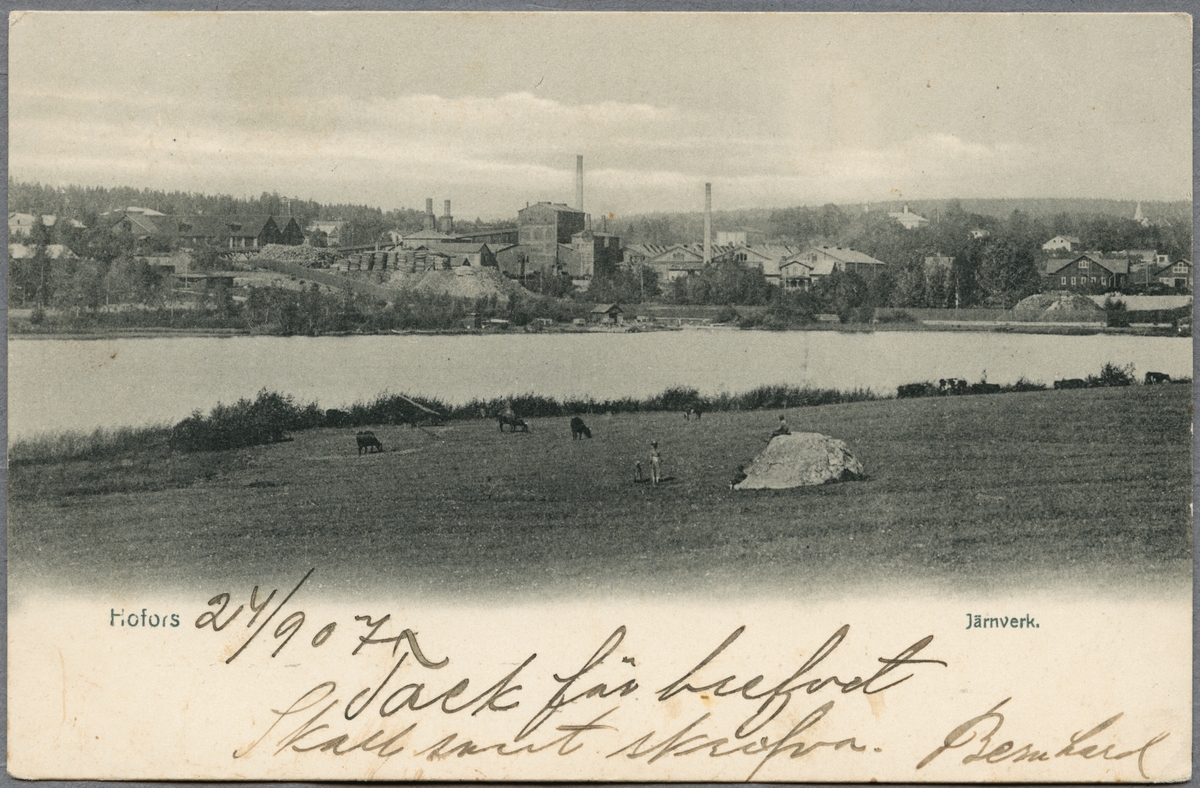 Hofors 24/9 07 Järnverk.
Tack för brefvet
Skall snart skrifva. Bernhard